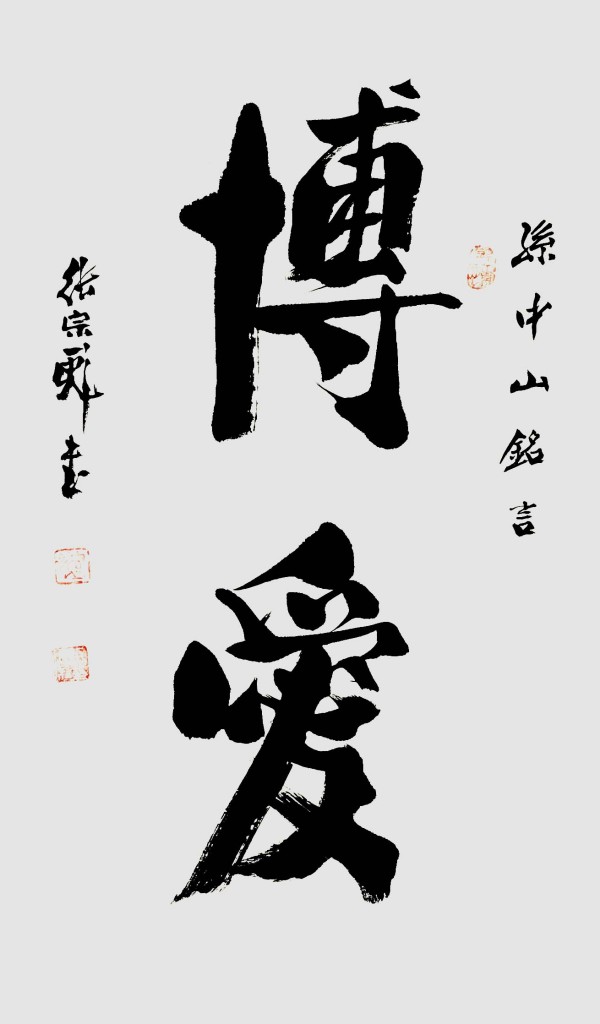 孫中山銘言
博愛
張宗彪書